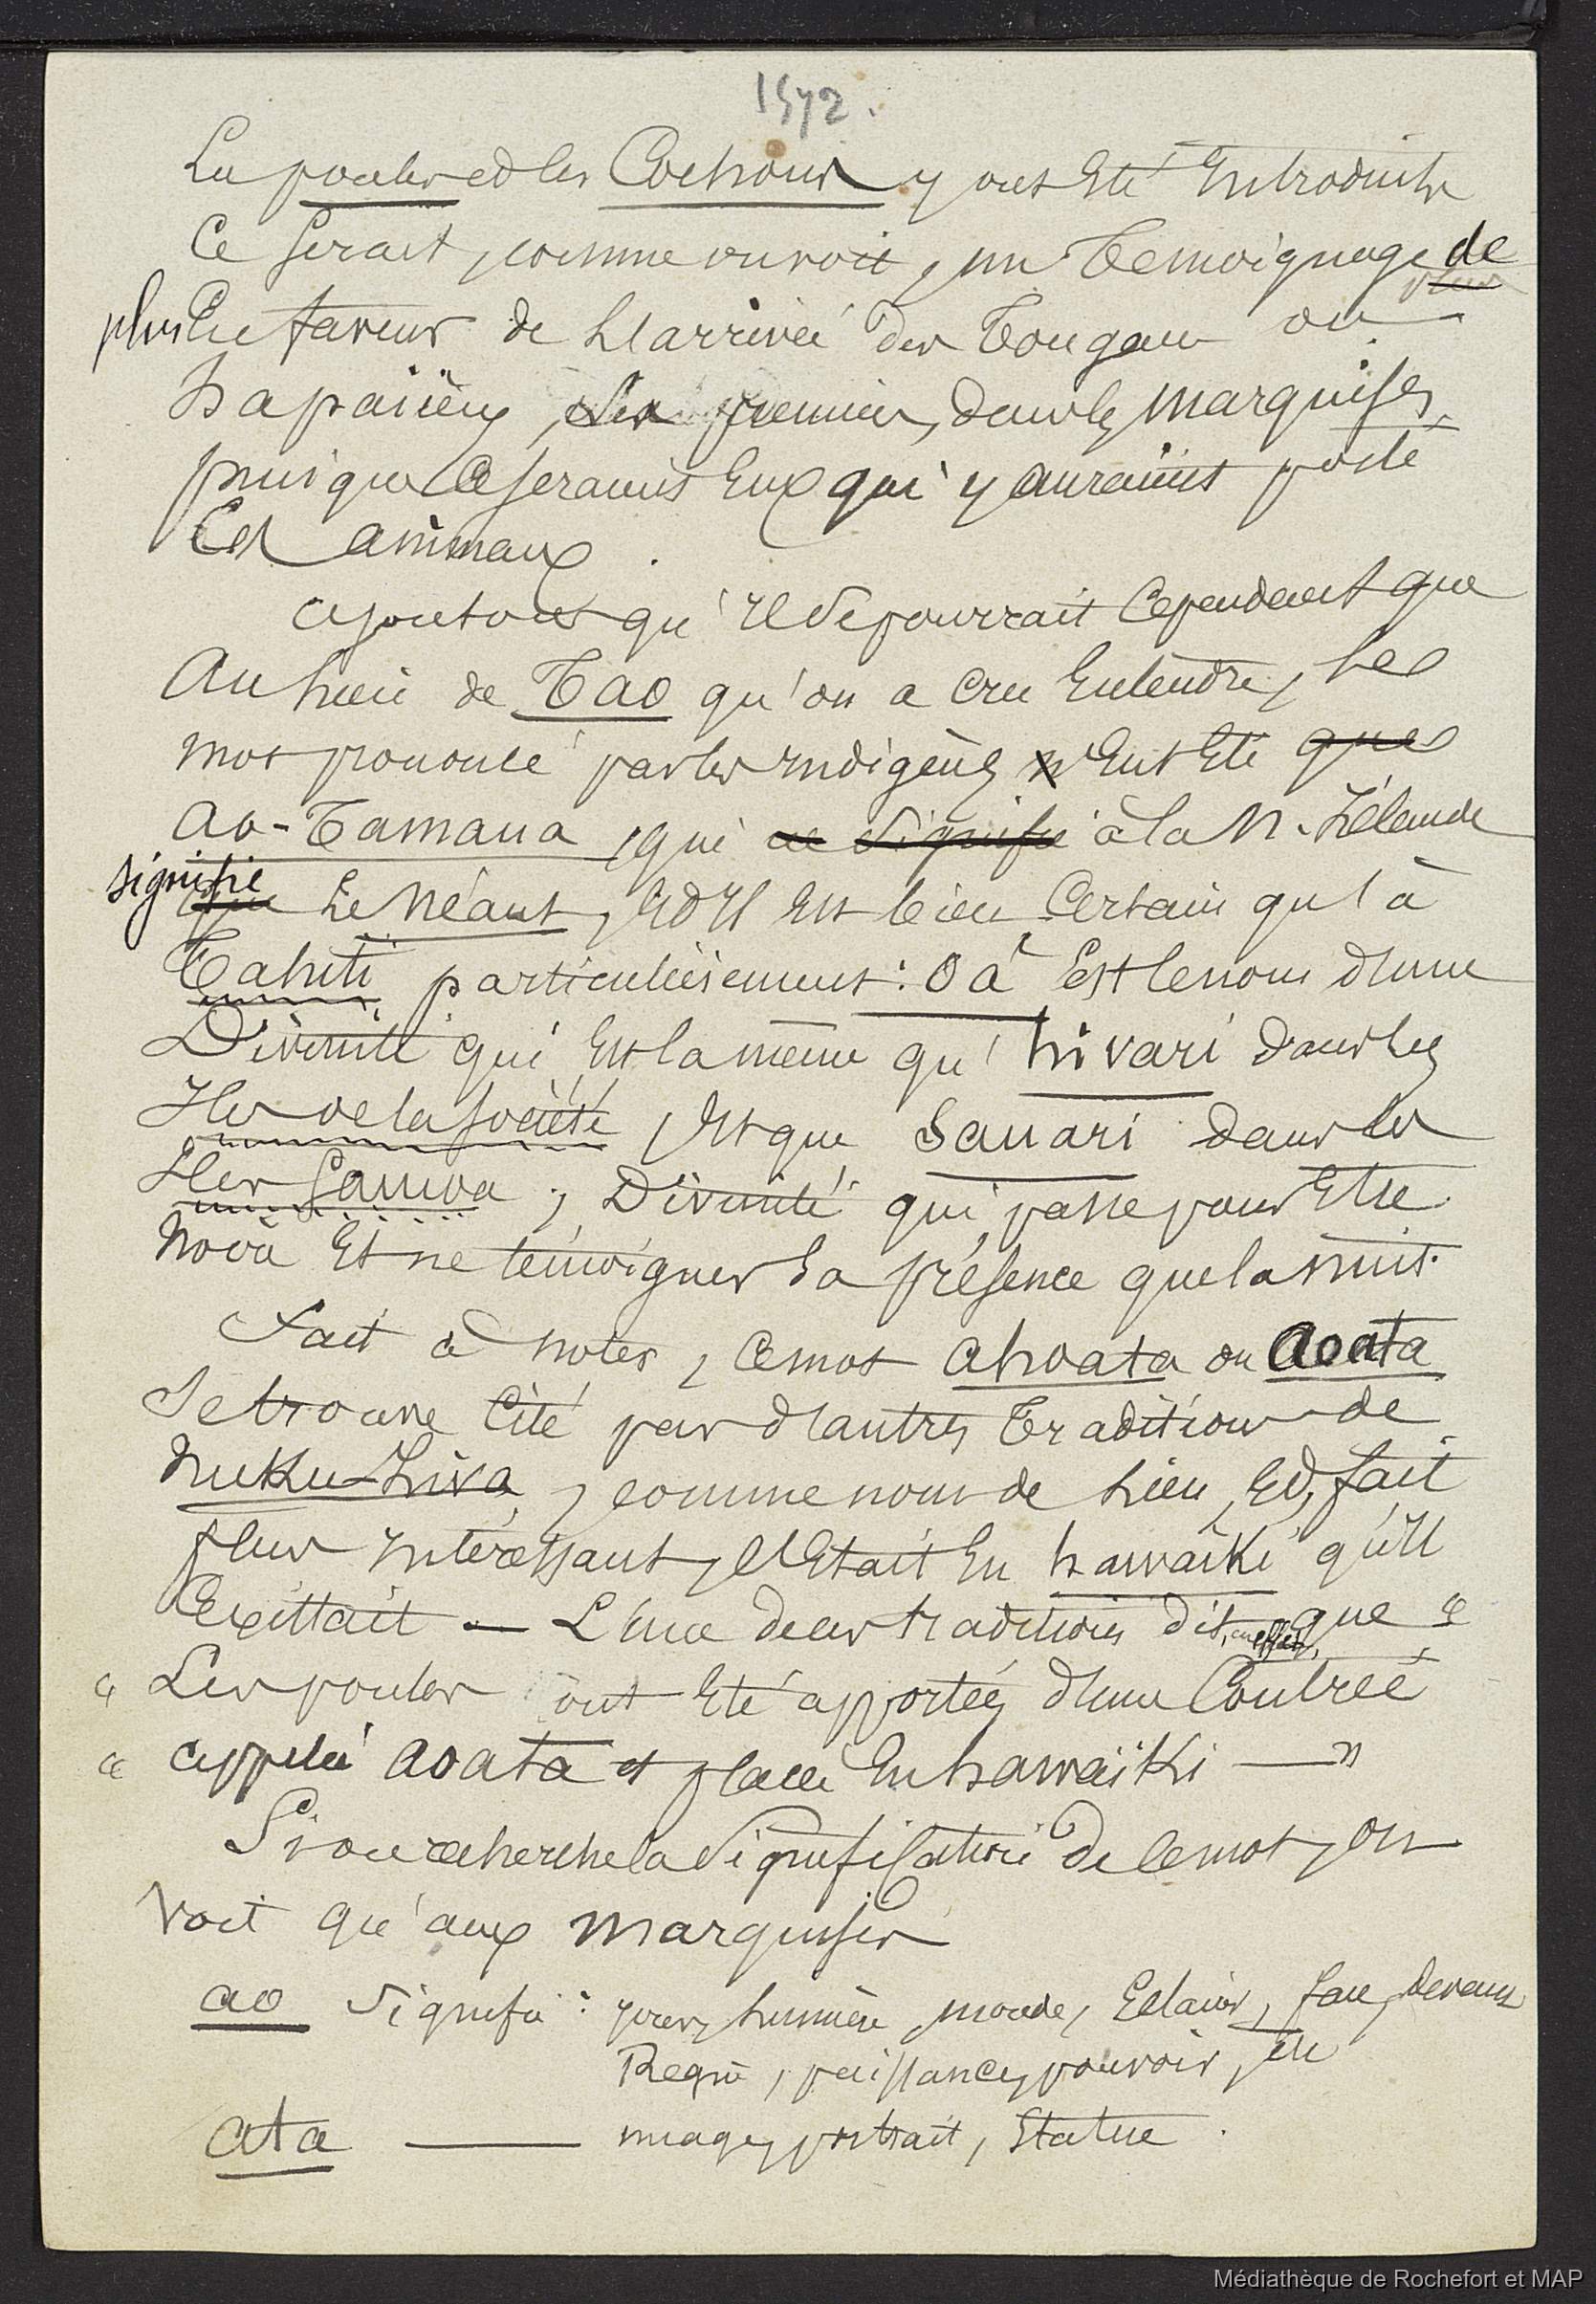 1572.
Les poules et les Cochons y ont été introduits
Ce serait, comme on voit, un témoignage de
plus En faveur de l'arrivée des Tongans ou
hapaiiens, les premiers, dans les marquises,
puisque Ce seraient Eux qui y auraient porté
Ces animaux.
ajoutons qu'il se pourrait Cependant que
Au lieu de Tao qu'on a cru Entendre, le
mot prononcé par les indigènes n'eut été que
Ao-Tamana, qui ce signifie à la N. Zélande
signifie que Le Néant, Et Il Est bien Certain qu'à
Tahiti particulièrement: O a Est le nom d'une
Divinité qui Est la même qu' hivari dans les
Iles de la Société, Et que Sauari dans les
Iles Samoa, Divinité qui passe pour Etre
Noire Et ne témoigner sa présence que la nuit.
Fait à noter, Ce mot ahoata ou aoata
Se trouve Cité par d'autres Traditions de
nuku-hiva, comme nom de lieu, Et, fait
plus intéressant, c'était En hawaïki qu'il
Existait — L'une de ces traditions dit, en effet, que «
« Les poules ont Eté apportées d'une Contrée
« appelée aoata et placée En hawaïki — »
Si on recherche la signification de Ce mot, on
voit qu'aux marquises
ao signifie : jour, lumière, monde, Eclair, face, devant
Règne, puissance, pouvoir, etc
ata — image, portrait, Statue.
Médiathèque de Rochefort et MAP